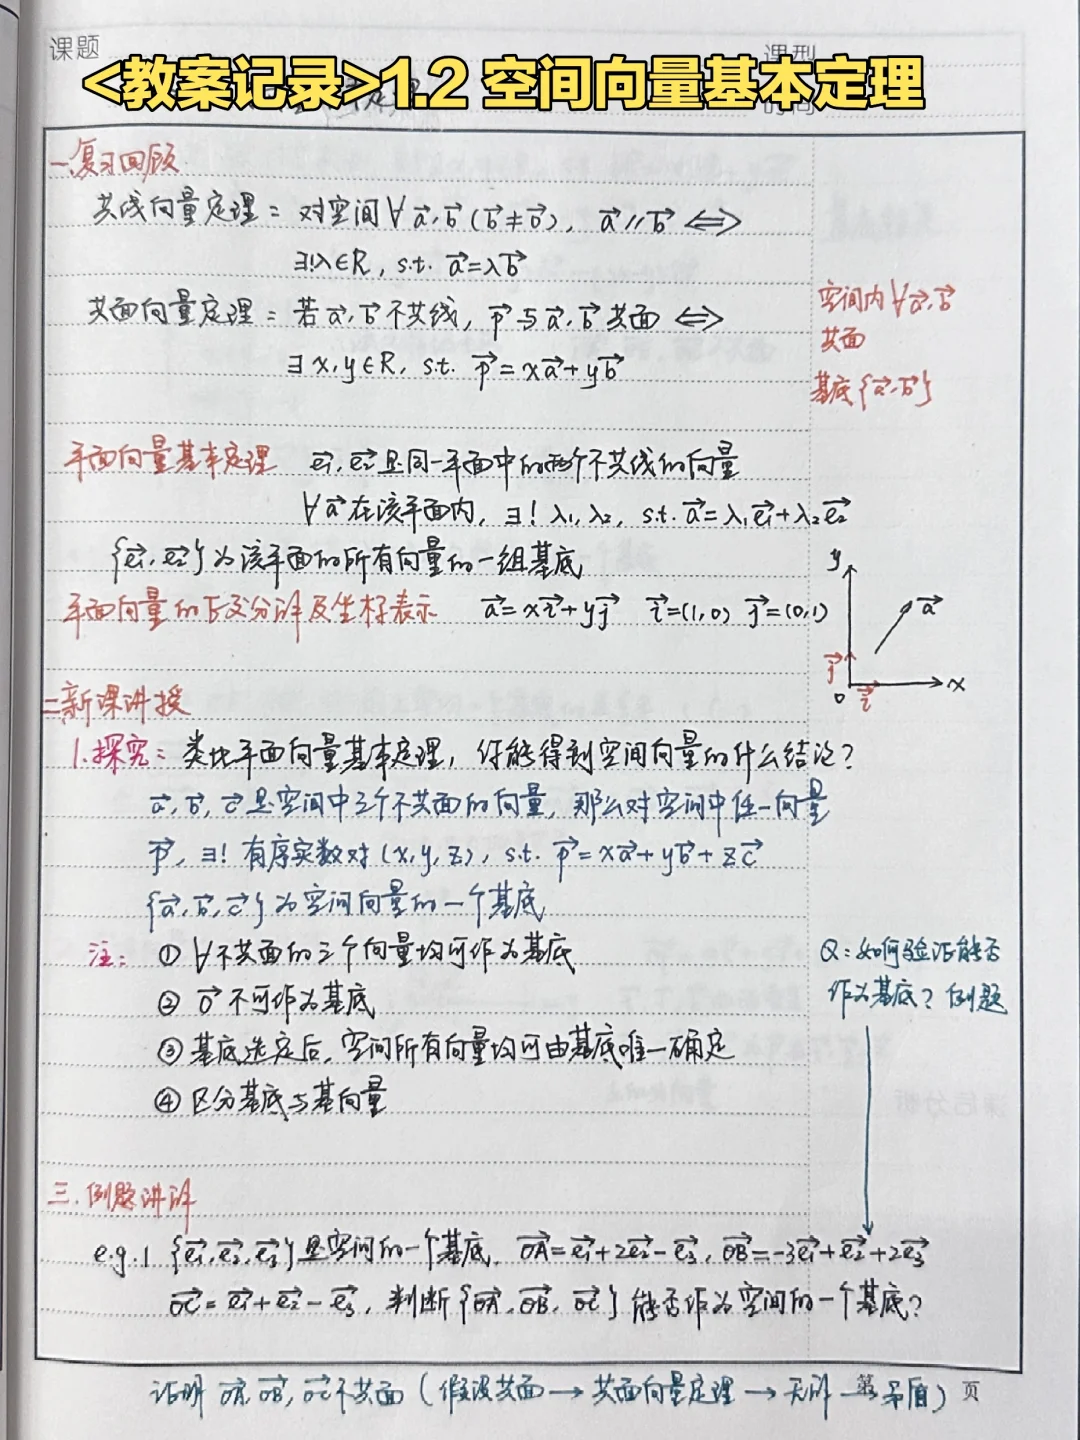 课题
课型
<教案记录>1.2 空间向量基本定理
时间
一.复习回顾
共线向量定理: 对空间∀a⃗,b⃗(b⃗≠0⃗), a⃗∥b⃗ ⇔
∃!λ∈R, s.t. a⃗=λb⃗
共面向量定理: 若a⃗,b⃗不共线, p⃗与a⃗,b⃗共面 ⇔
∃x,y∈R, s.t. p⃗=xa⃗+yb⃗
空间内∀a⃗,b⃗
共面
基底{a⃗,b⃗}
平面向量基本定理 e₁⃗,e₂⃗是同一平面中的两个不共线的向量
∀a⃗在该平面内, ∃! λ₁,λ₂, s.t. a⃗=λ₁e₁⃗+λ₂e₂⃗
{e₁⃗,e₂⃗}为该平面的所有向量的一组基底
平面向量的正交分解及坐标表示 a⃗=xi⃗+yj⃗ i⃗=(1,0) j⃗=(0,1)
y
a⃗
j⃗
0 i⃗ x
二.新课讲授
1.探究: 类比平面向量基本定理, 你能得到空间向量的什么结论?
a⃗,b⃗,c⃗是空间中三个不共面的向量, 那么对空间中任一向量
p⃗, ∃! 有序实数对(x,y,z), s.t. p⃗=xa⃗+yb⃗+zc⃗
{a⃗,b⃗,c⃗}为空间向量的一个基底
注: ① ∀不共面的三个向量均可作为基底
② 0⃗不可作为基底
③ 基底选定后, 空间所有向量均可由基底唯一确定
④ 区分基底与基向量
Q: 如何验证能否
作为基底? 例题
三.例题讲解
e.g.1 {e₁⃗,e₂⃗,e₃⃗}是空间的一个基底, OA⃗=e₁⃗+2e₂⃗-e₃⃗, OB⃗=-3e₁⃗+e₂⃗+2e₃⃗
OC⃗=e₁⃗+e₂⃗-e₃⃗, 判断{OA⃗,OB⃗,OC⃗}能否作为空间的一个基底?
证明OA⃗,OB⃗,OC⃗不共面(假设共面→共面向量定理→无解→矛盾)
第 页